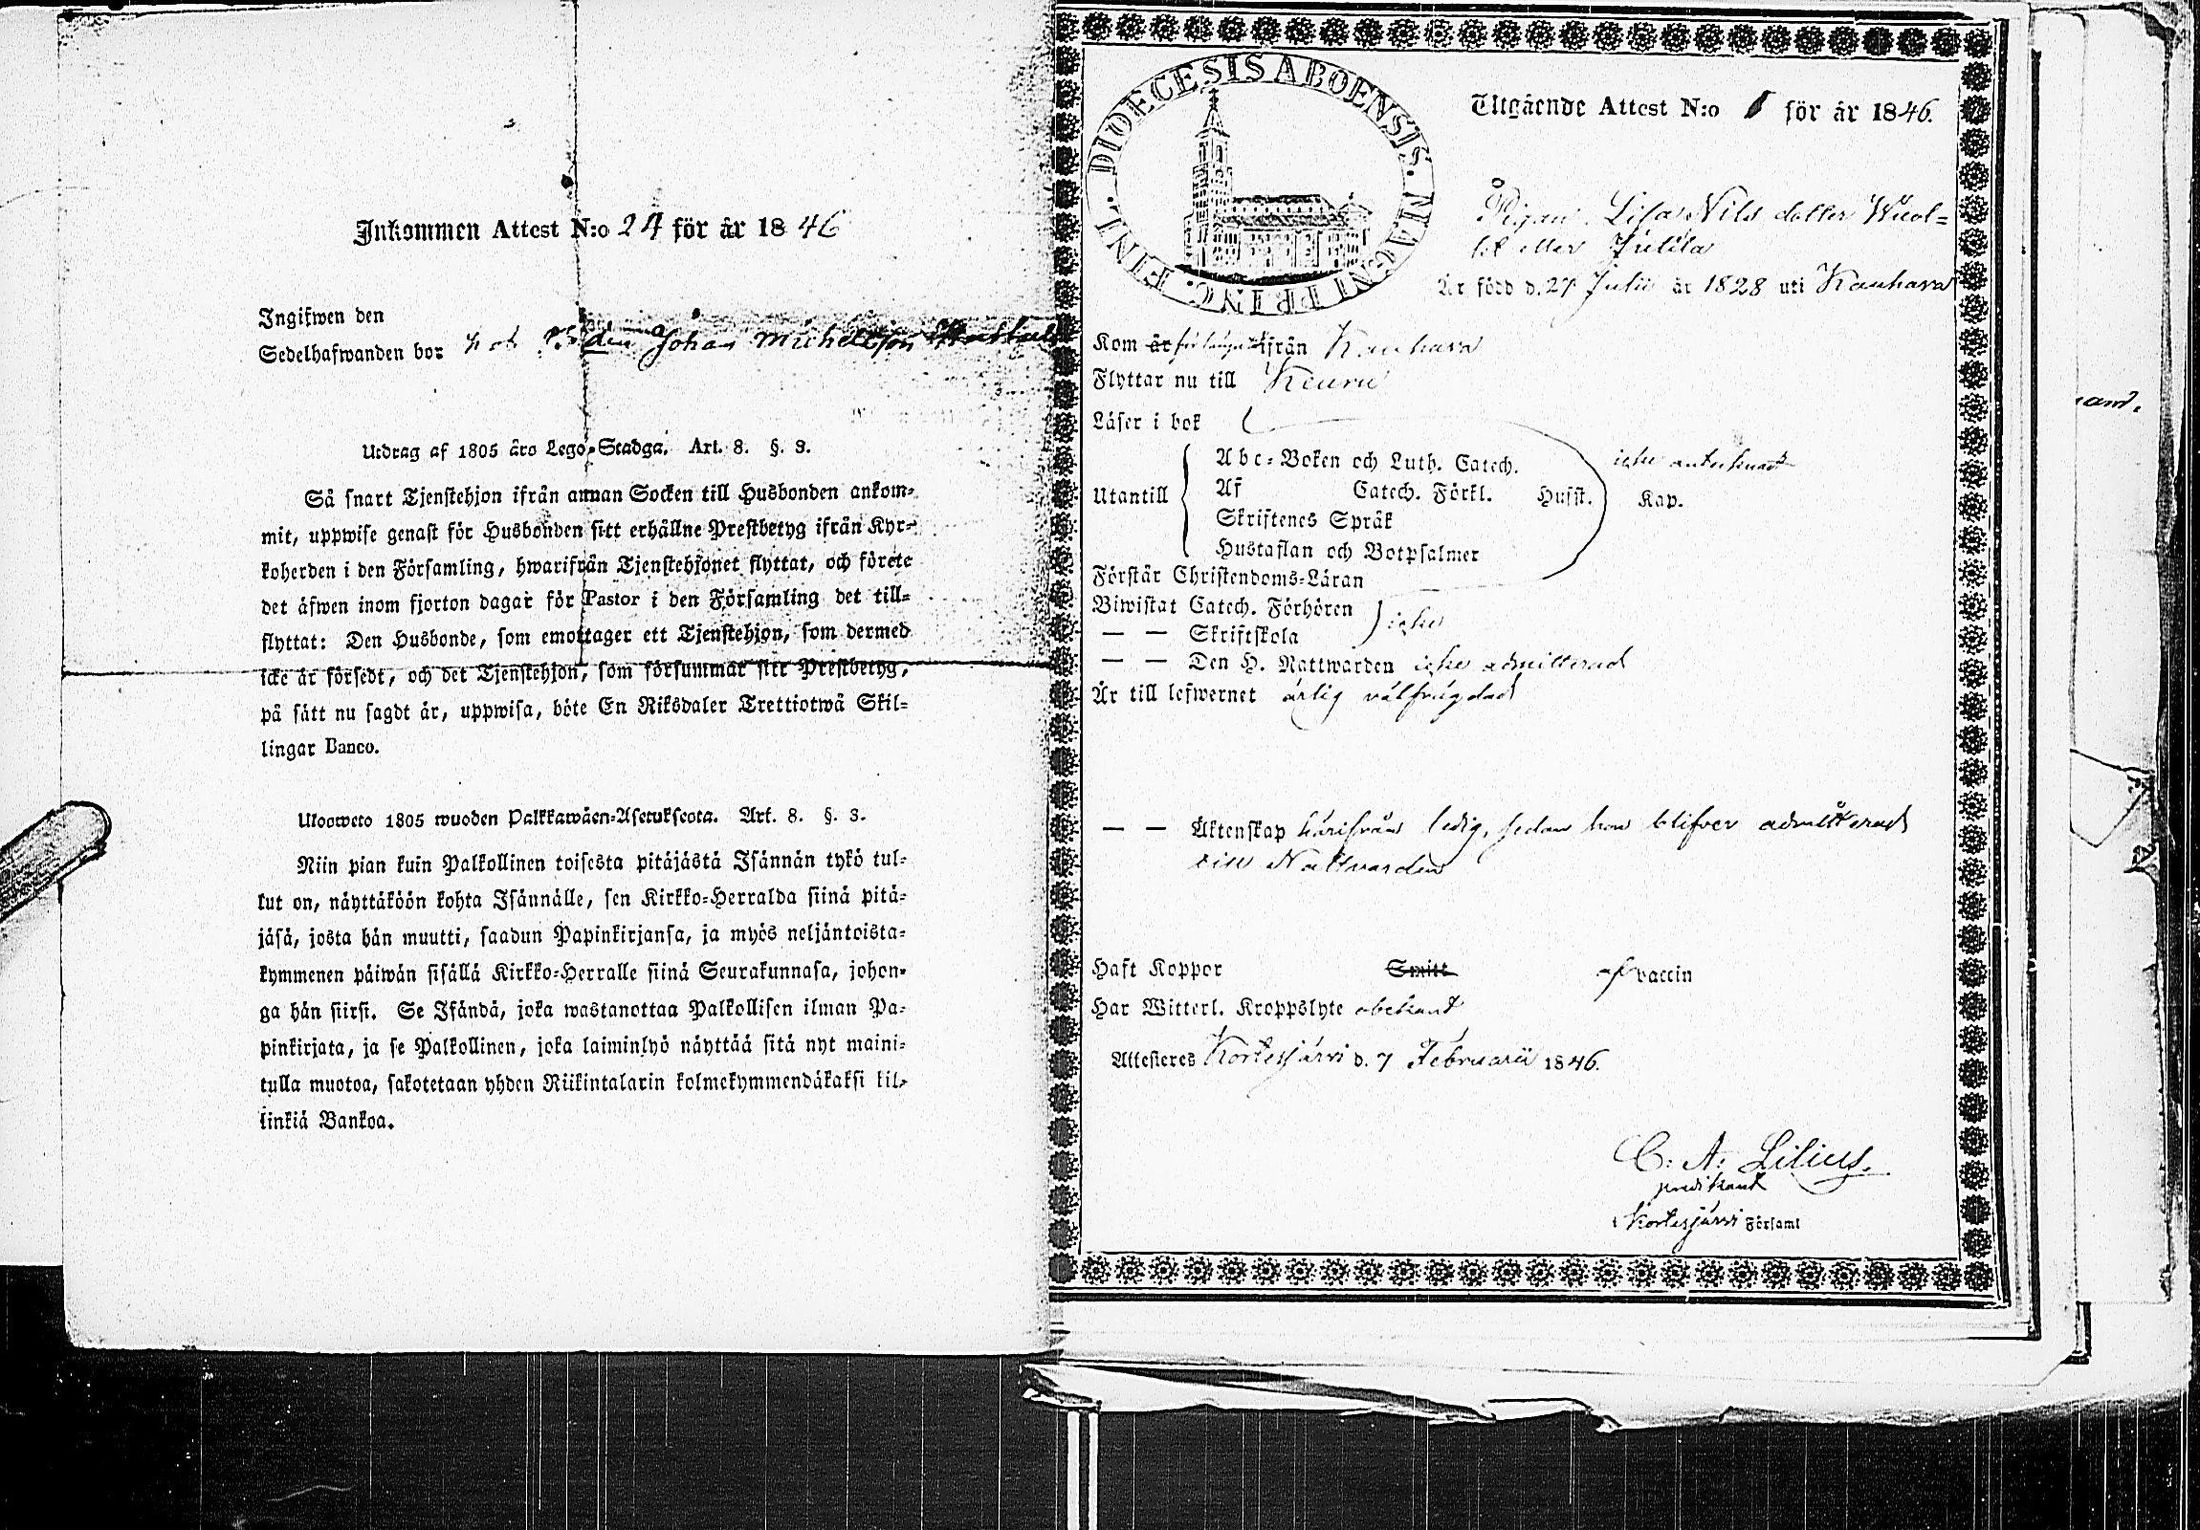 Inkommen Attest N:o 24 för år 1846
Ingifwen den
Sedelhafwanden bor hos Johan Michelsson
Utdrag af 1805 åro Lego-Stadga. Art. 8. §. 3.
Så snart Tjenstehjon ifrån annan Socken till Husbonden ankom-
mit, uppwise genast för Husbonden sitt erhållne Prestbetyg ifrån Kyr-
koherden i den Församling, hwarifrån Tjenstehjonet flyttat, och förete
det äfwen inom fjorton dagar för Pastor i den Församling det till-
flyttat: Den Husbonde, som emottager ett Tjenstehjon, som dermed
icke är försedt, och det Tjenstehjon, som försummar sitt Prestbetyg,
på sätt nu sagdt är, uppwisa, böte En Riksdaler Trettiotwå Skil-
lingar Banco.
Ulosweto 1805 wuoden Palkkawäen-Asetuksesta. Art. 8. §. 3.
Niin pian kuin Palkollinen toisesta pitäjästä Isännän tykö tul-
lut on, näyttäköön kohta Isännälle, sen Kirkko-Herralda siinä pitä-
jäsä, josta hän muutti, saadun Papinkirjansa, ja myös neljäntoista-
kymmenen päiwän sisällä Kirkko-Herralle siinä Seurakunnasa, johon-
ga hän siirsi. Se Isändä, joka wastanottaa Palkollisen ilman Pa-
pinkirjata, ja se Palkollinen, joka laiminlyö näyttää sitä nyt maini-
tulla muotoa, sakotetaan yhden Riikintalarin kolmekymmendäkaksi kil-
linkiä Bankoa.
DIOECESIS ABOENSIS. MAGNI PRINC. FINL.
Utgående Attest N:o för år 1846.
Pigan Lisa Nils dotter Wuol-
let eller Jutila
Är född d. 27 Julii år 1828 uti Kauhava
Kom år för länge ifrån Kauhava
Flyttar nu till Keuru
Läser i bok
Abc-Boken och Luth. Catech. icke antecknadt
Utantill Af Catech. Förkl. Husft. Kap.
Skriftenes Språk
Hustaflan och Botpsalmer
Förstår Christendoms-Läran
Biwistat Catech. Förhören icke
— — Skriftskola
— — Den H. Nattwarden icke admitterad
Är till lefwernet ärlig välfrägdad
— — Äktenskap härifrån ledig, sedan hon blifver admitterad
till Nattvarden
Haft Koppor Smitt af vaccin
Har Witterl. Kroppslyte obekant
Attesteres Kortesjärvi d. 7 Februarii 1846.
C. A. Lilius.
predikant
i Kortesjärvi Församl